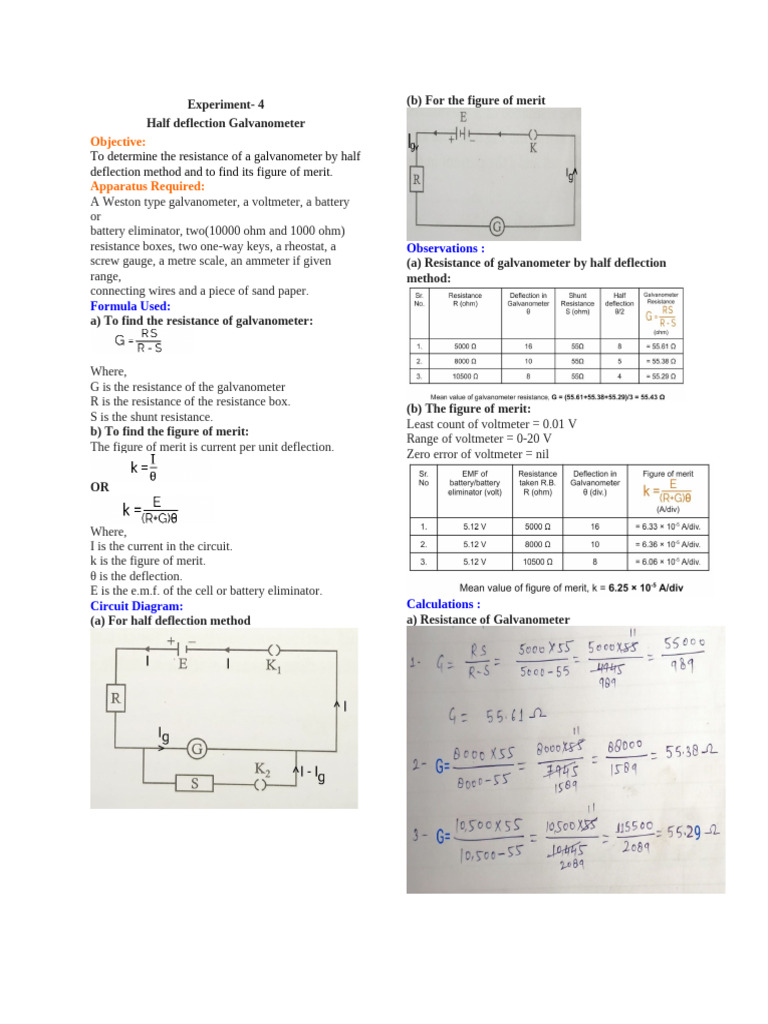 Experiment- 4
Half deflection Galvanometer
Objective:
To determine the resistance of a galvanometer by half
deflection method and to find its figure of merit.
Apparatus Required:
A Weston type galvanometer, a voltmeter, a battery
or
battery eliminator, two(10000 ohm and 1000 ohm)
resistance boxes, two one-way keys, a rheostat, a
screw gauge, a metre scale, an ammeter if given
range,
connecting wires and a piece of sand paper.
Formula Used:
a) To find the resistance of galvanometer:
G = RS / R - S
Where,
G is the resistance of the galvanometer
R is the resistance of the resistance box.
S is the shunt resistance.
b) To find the figure of merit:
The figure of merit is current per unit deflection.
k = I / θ
OR
k = E / (R+G)θ
Where,
I is the current in the circuit.
k is the figure of merit.
θ is the deflection.
E is the e.m.f. of the cell or battery eliminator.
Circuit Diagram:
(a) For half deflection method
+ −
I E I K1
R
I
Ig
G
S K2 I - Ig
(b) For the figure of merit
E
Ig + − K
R Ig
G
Observations :
(a) Resistance of galvanometer by half deflection
method:
Sr. No. Resistance R (ohm) Deflection in Galvanometer θ Shunt Resistance S (ohm) Half deflection θ/2 Galvanometer Resistance G = RS / R - S (ohm)
1. 5000 Ω 16 55Ω 8 = 55.61 Ω
2. 8000 Ω 10 55Ω 5 = 55.38 Ω
3. 10500 Ω 8 55Ω 4 = 55.29 Ω
Mean value of galvanometer resistance, G = (55.61+55.38+55.29)/3 = 55.43 Ω
(b) The figure of merit:
Least count of voltmeter = 0.01 V
Range of voltmeter = 0-20 V
Zero error of voltmeter = nil
Sr. No EMF of battery/battery eliminator (volt) Resistance taken R.B. R (ohm) Deflection in Galvanometer θ (div.) Figure of merit k = E / (R+G)θ (A/div)
1. 5.12 V 5000 Ω 16 = 6.33 × 10⁻⁵ A/div.
2. 5.12 V 8000 Ω 10 = 6.36 × 10⁻⁵ A/div.
3. 5.12 V 10500 Ω 8 = 6.06 × 10⁻⁵ A/div.
Mean value of figure of merit, k = 6.25 × 10⁻⁵ A/div
Calculations :
a) Resistance of Galvanometer
1- G = RS / R-S = 5000×55 / 5000-55 = 5000×55 11 / 4945 989 = 55000 / 989
G = 55.61 Ω
2- G= 8000×55 / 8000-55 = 8000×55 11 / 7945 1589 = 88000 / 1589 = 55.38 Ω
3- G= 10,500×55 / 10,500-55 = 10,500×55 11 / 10,445 2089 = 115500 / 2089 = 55.29 Ω